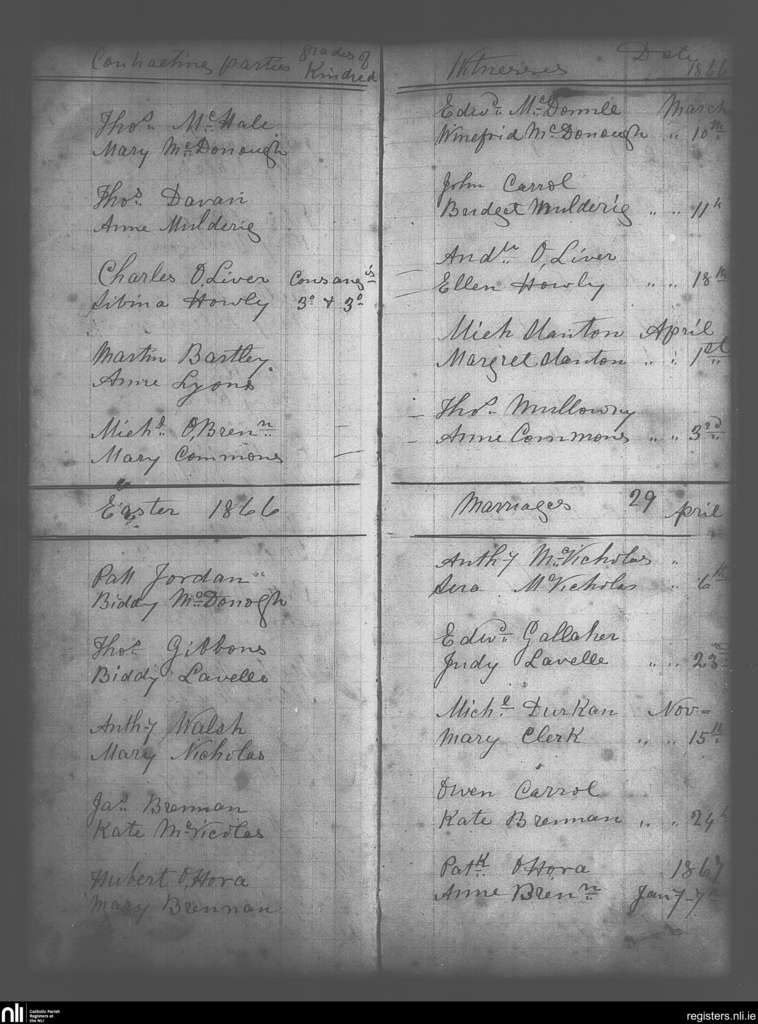 Contracting parties grades of Kindred
Witnesses Date 1866
Thos. McHale
Mary McDonough
Edwd. McDonnell March
Winefrid McDonough " 10th
Thos. Davan
Anne Mulderig
John Carrol
Bridget Mulderig " " 11th
Charles O,Liver Consangs
Sibina Howly 3o & 3o
Andw O,Liver
Ellen Howly " " 18th
Martin Bartley
Anne Lyons
Mich Hanton April
Margret Hanton " " 1st
Michl. O,Brenn
Mary Commons
Thos. Mullowny
Anne Commons " " 3rd
Easter 1866
Marriages 29 April
Patt Jordan
Biddy McDonogh
Anth-y McNicholas "
McNicholas " 6th
Thos. Gibbons
Biddy Lavelle
Edwd. Gallaher
Judy Lavelle " " 23
Anth-y Walsh
Mary Nicholas
Michl. Durkan Nov-
Mary Clerk " " 15th
Jas. Brennan
Kate McNicolas
Owen Carrol
Kate Brennan " " 24
Hubert O,Hora
Mary Brennan
Patk. OHora 1867
Anne Brenn Jany-7
nli Catholic Parish Registers at the NLI
registers.nli.ie